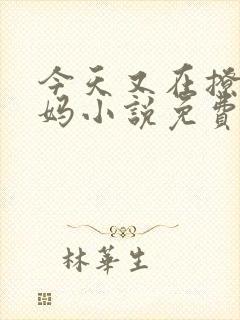 今天又在撩
妈小說免費
林華生